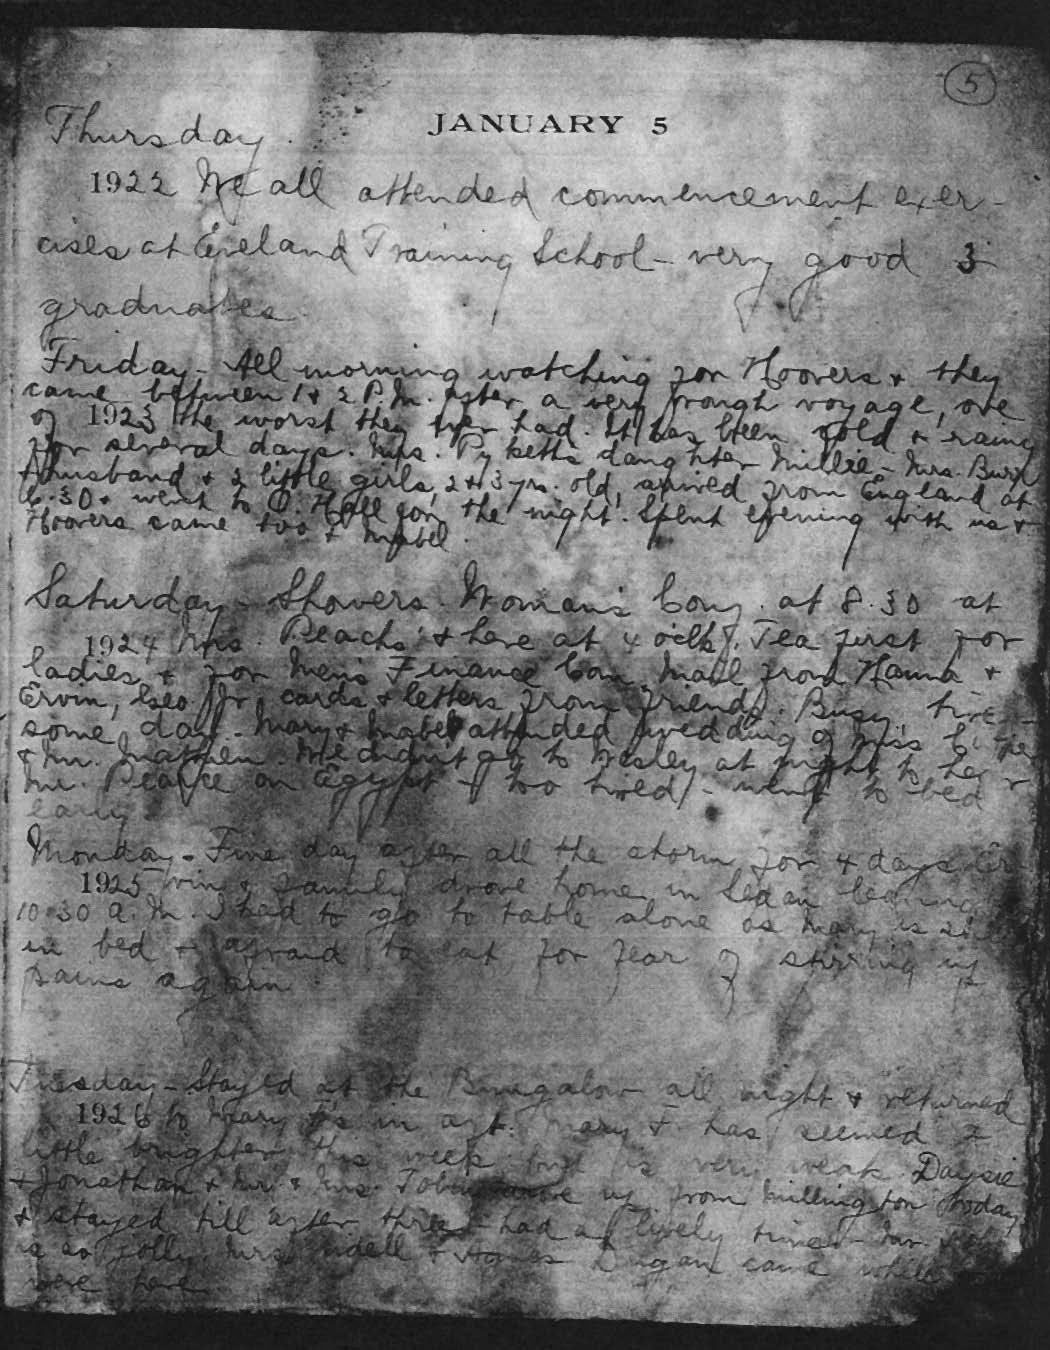 5
JANUARY 5
Thursday.
1922 We all attended commencement exer-
cises at Eveland Training School - very good 3
graduates.
Friday - All morning watching for Hoovers & they
came between 1 & 2 P.M. after a very rough voyage, one
of 1923 the worst they ever had. It has been cold & rainy
for several days. Mrs. Pyketts daughter Millie - Mrs. Burr
husband & 2 little girls, 2 & 3 yrs. old, arrived from England at
6.30 & went to O. Hall for the night. Spent evening with us &
Hoovers came too & Mabel.
Saturday - Showers. Woman's Cong. at 8.30 at
1924 Mrs. Peachs' & here at 4 o'clk. Tea first for
ladies & for Men's Finance Com. Mail from Hanna &
Ervin, Geo. Jr cards & letters from friends. Busy,
some day - Mary & Mabel attended wedding of Miss
& Mr. Mathew. We didn't go to Wesley at night to hear
Mr. Pearce on Egypt - too tired - went to bed
early.
Monday - Fine day after all the storm for 4 days. Er
1925 vin & family drove home in Sedan leaving
10.30 A.M. I had to go to table alone as Mary is still
in bed & afraid to eat for fear of stirring up
pains again.
Tuesday - Stayed at the Bungalow all night & returned
1926 to Mary F's in aft. Mary F. has seemed a
little brighter this week but is very weak. Daysie
& Jonathan & Mr. & Mrs. up from Millington today
& stayed till after three - had a lively time - Mr.
is so jolly. Mrs. & Agnes Dugan came while
were here.